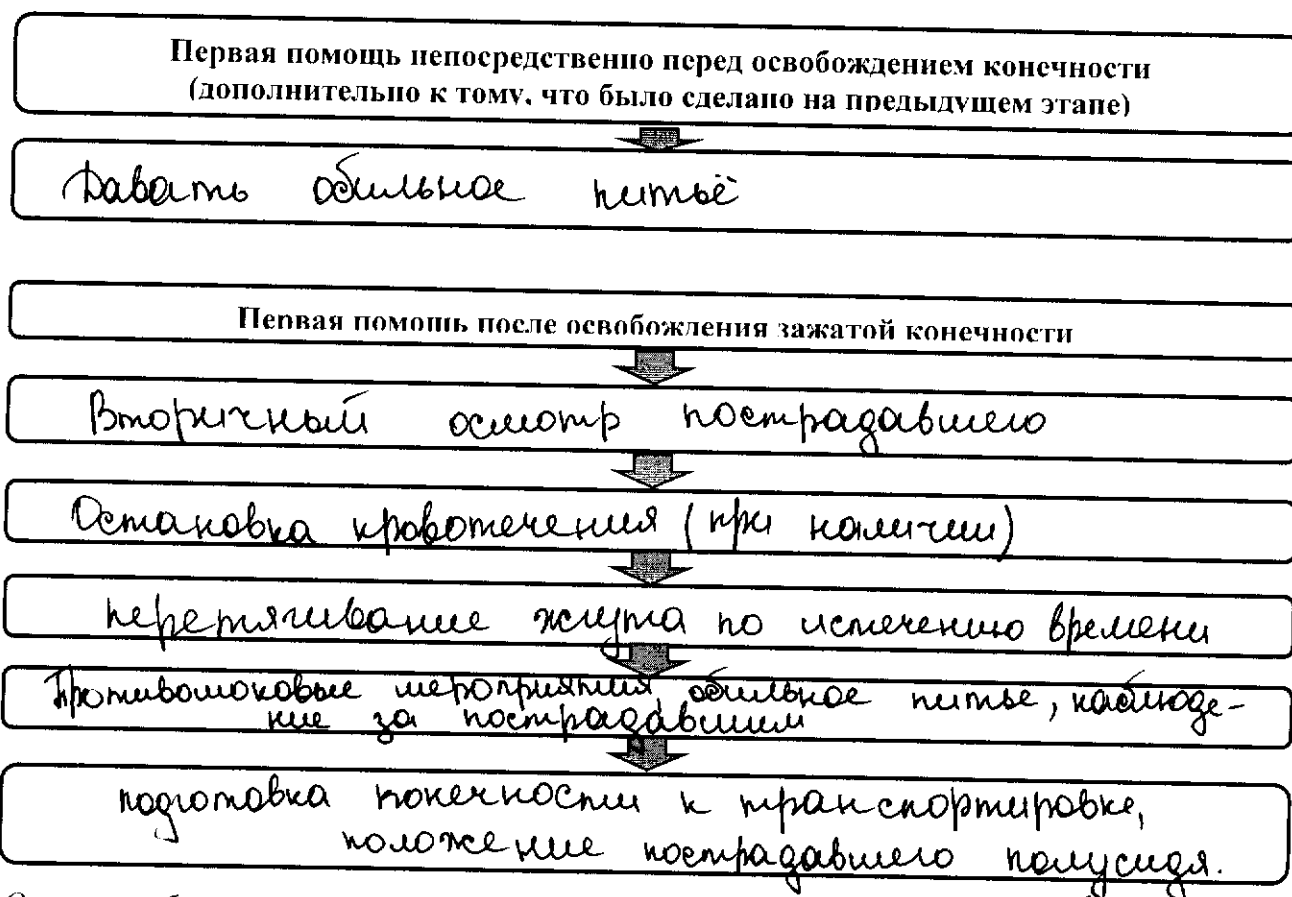 Первая помощь непосредственно перед освобождением конечности
(дополнительно к тому, что было сделано на предыдущем этапе)
Давать обильное питьё
Первая помощь после освобождения зажатой конечности
Вторичный осмотр пострадавшего
Остановка кровотечения (при наличии)
перетягивание жгута по истечению времени
Противошоковые мероприятия, обильное питье, наблюде-
ние за пострадавшим
подготовка конечности к транспортировке,
положение пострадавшего полусидя.